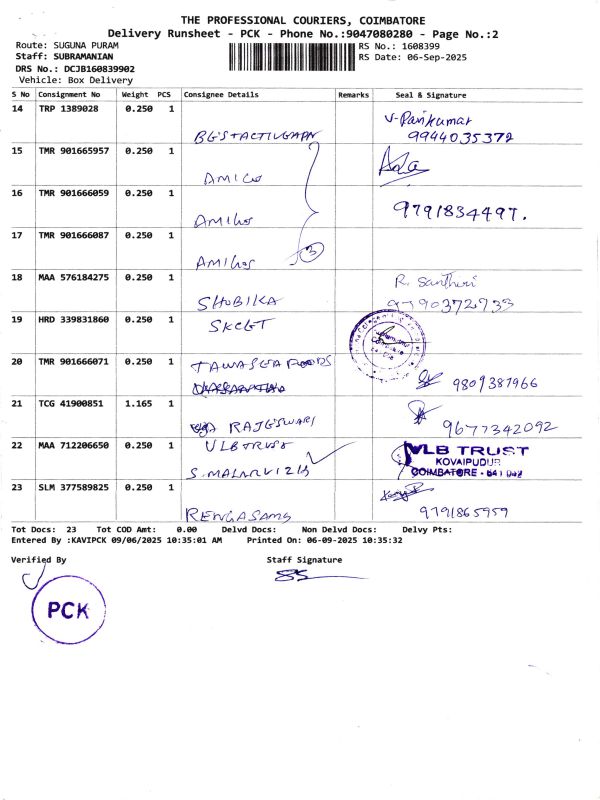 THE PROFESSIONAL COURIERS, COIMBATORE
Delivery Runsheet - PCK - Phone No.:9047080280 - Page No.:2
Route: SUGUNA PURAM
Staff: SUBRAMANIAN
DRS No.: DCJB160839902
Vehicle: Box Delivery
RS No.: 1608399
RS Date: 06-Sep-2025
S No Consignment No Weight PCS Consignee Details Remarks Seal & Signature
14 TRP 1389028 0.250 1
9944035372
15 TMR 901665957 0.250 1
16 TMR 901666059 0.250 1 9791834497.
17 TMR 901666087 0.250 1
3
18 MAA 576184275 0.250 1 R. Santhuri
SHOBIKA 9790372733
19 HRD 339831860 0.250 1 SKCET
20 TMR 901666071 0.250 1 TAWASEA FOODS
9809387966
21 TCG 41900851 1.165 1
RAJESWARI 9677342092
22 MAA 712206650 0.250 1 VLB TRUST VLB TRUST
KOVAIPUDUR
S. MALARVIZHI COIMBATORE - 641 042
23 SLM 377589825 0.250 1
RENGASAMY 9791865959
Tot Docs: 23 Tot COD Amt: 0.00 Delvd Docs: Non Delvd Docs: Delvy Pts:
Entered By :KAVIPCK 09/06/2025 10:35:01 AM Printed On: 06-09-2025 10:35:32
Verified By Staff Signature
PCK